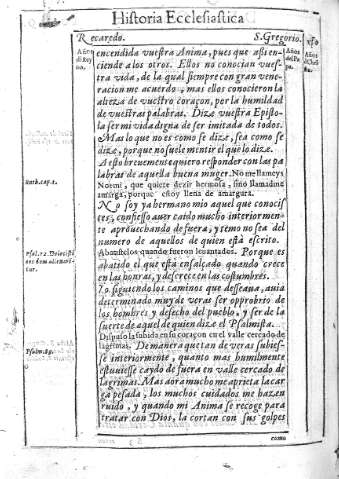 Historia Ecclesiastica
Recaredo. S. Gregorio.
Año de Reyno.
Años del Papa.
Años de Christo.
encendida vuestra Anima, pues que assi en-
ciende a los otros. Ellos no conocian vues-
tra vida, de la qual siempre con gran vene-
racion me acuerdo, mas ellos conocieron la
alteza de vuestro coraçon, por la humildad
de vuestras palabras. Dize vuestra Episto-
la ser mi vida digna de ser imitada de todos.
Mas lo que no es como se dize, sea como se
dize, porque no suele mentir el que lo dize.
A esto brevemente quiero responder con las pa
labras de aquella buena muger. No me llameys
Noemi, que quiere dezir hermosa, sino llamadme
amarga, porque estoy llena de amargura.
Ruth. cap. 1.
No soy ya hermano mio aquel que conocis
tes, confiesso aver caido mucho interiormen-
te aprovechando de fuera, y temo no sea del
numero de aquellos de quien está escrito.
Abaxastelos quando fueron levantados. Porque es
abatido el que está ensalçado quando crece
en las honras, y descrece en las costumbres.
Yo siguiendo los caminos que desseava, avia
determinado muy de veras ser opprobrio de
los hombres y desecho del pueblo, y ser de la
suerte de aquel de quien dize el Psalmista.
Dispuso la subida en su coraçon en el valle cercado de
lagrimas. De manera que tan de veras subies-
Psalm. 83.
se interiormente, quanto mas humilmente
estuviesse caydo de fuera en valle cercado de
lagrimas. Mas aora mucho me aprieta la car
ga pesada, los muchos cuidados me hazen
ruido, y quando mi Anima se recoge para
tratar con Dios, la cortan con sus golpes
como